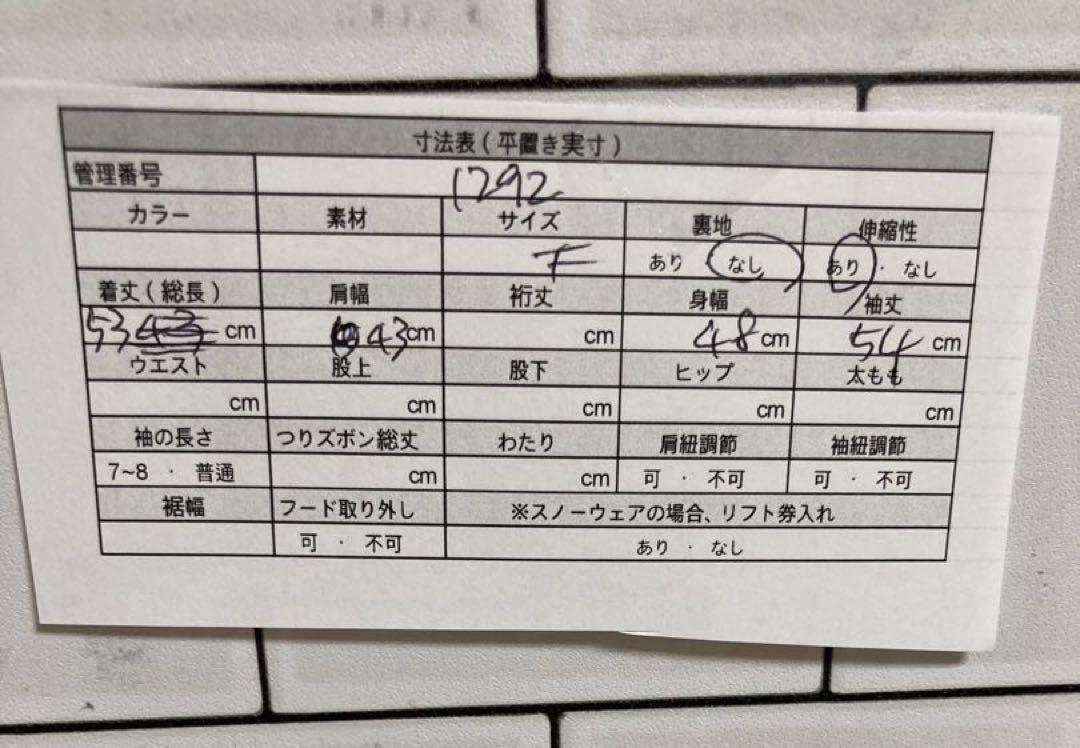 寸法表(平置き実寸)
管理番号 1292
カラー 素材 サイズ 裏地 伸縮性
F あり なし あり・なし
着丈(総長) 肩幅 裄丈 身幅 袖丈
53 43 cm 43cm cm 48cm 54 cm
ウエスト 股上 股下 ヒップ 太もも
cm cm cm cm cm
袖の長さ つりズボン総丈 わたり 肩紐調節 袖紐調節
7~8・普通 cm cm 可・不可 可・不可
裾幅 フード取り外し ※スノーウェアの場合、リフト券入れ
可・不可 あり・なし